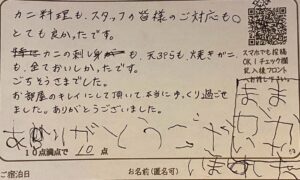 カニ料理も、スタッフの皆様のご対応も○
とても良かったです。
カニの刺し身も、天ぷらも、焼きガニ
も、全ておいしかったです。
ごちそうさまでした。
お部屋のキレイにして頂いて本当にすっくり過ごせ
ました。ありがとうございました。
ありがとうござ
いました
10点満点で 10 点
スマホでも投稿
OK！チェック欄
記入後フロント
ご宿泊日
お名前(匿名可)